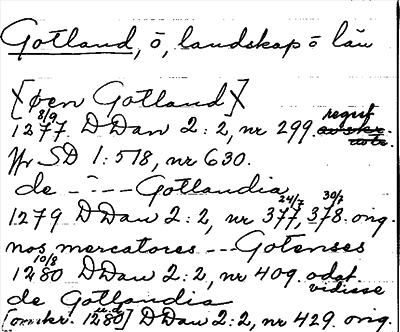 Gotland, ö, landskap o län
[øen Gotland]
8/9
1277 DDan 2:2, nr 299. regist
Yr SD 1:578, nr 630.
de - - - Gotlandia
24/7 30/7
1279 DDan 2:2, nr 377, 378. orig.
nos mercatores - - - Gotenses
10/8
1280 DDan 2:2, nr 409. odat. vidisse
de Gotlandia
[omkr. 1280] DDan 2:2, nr 429. orig.